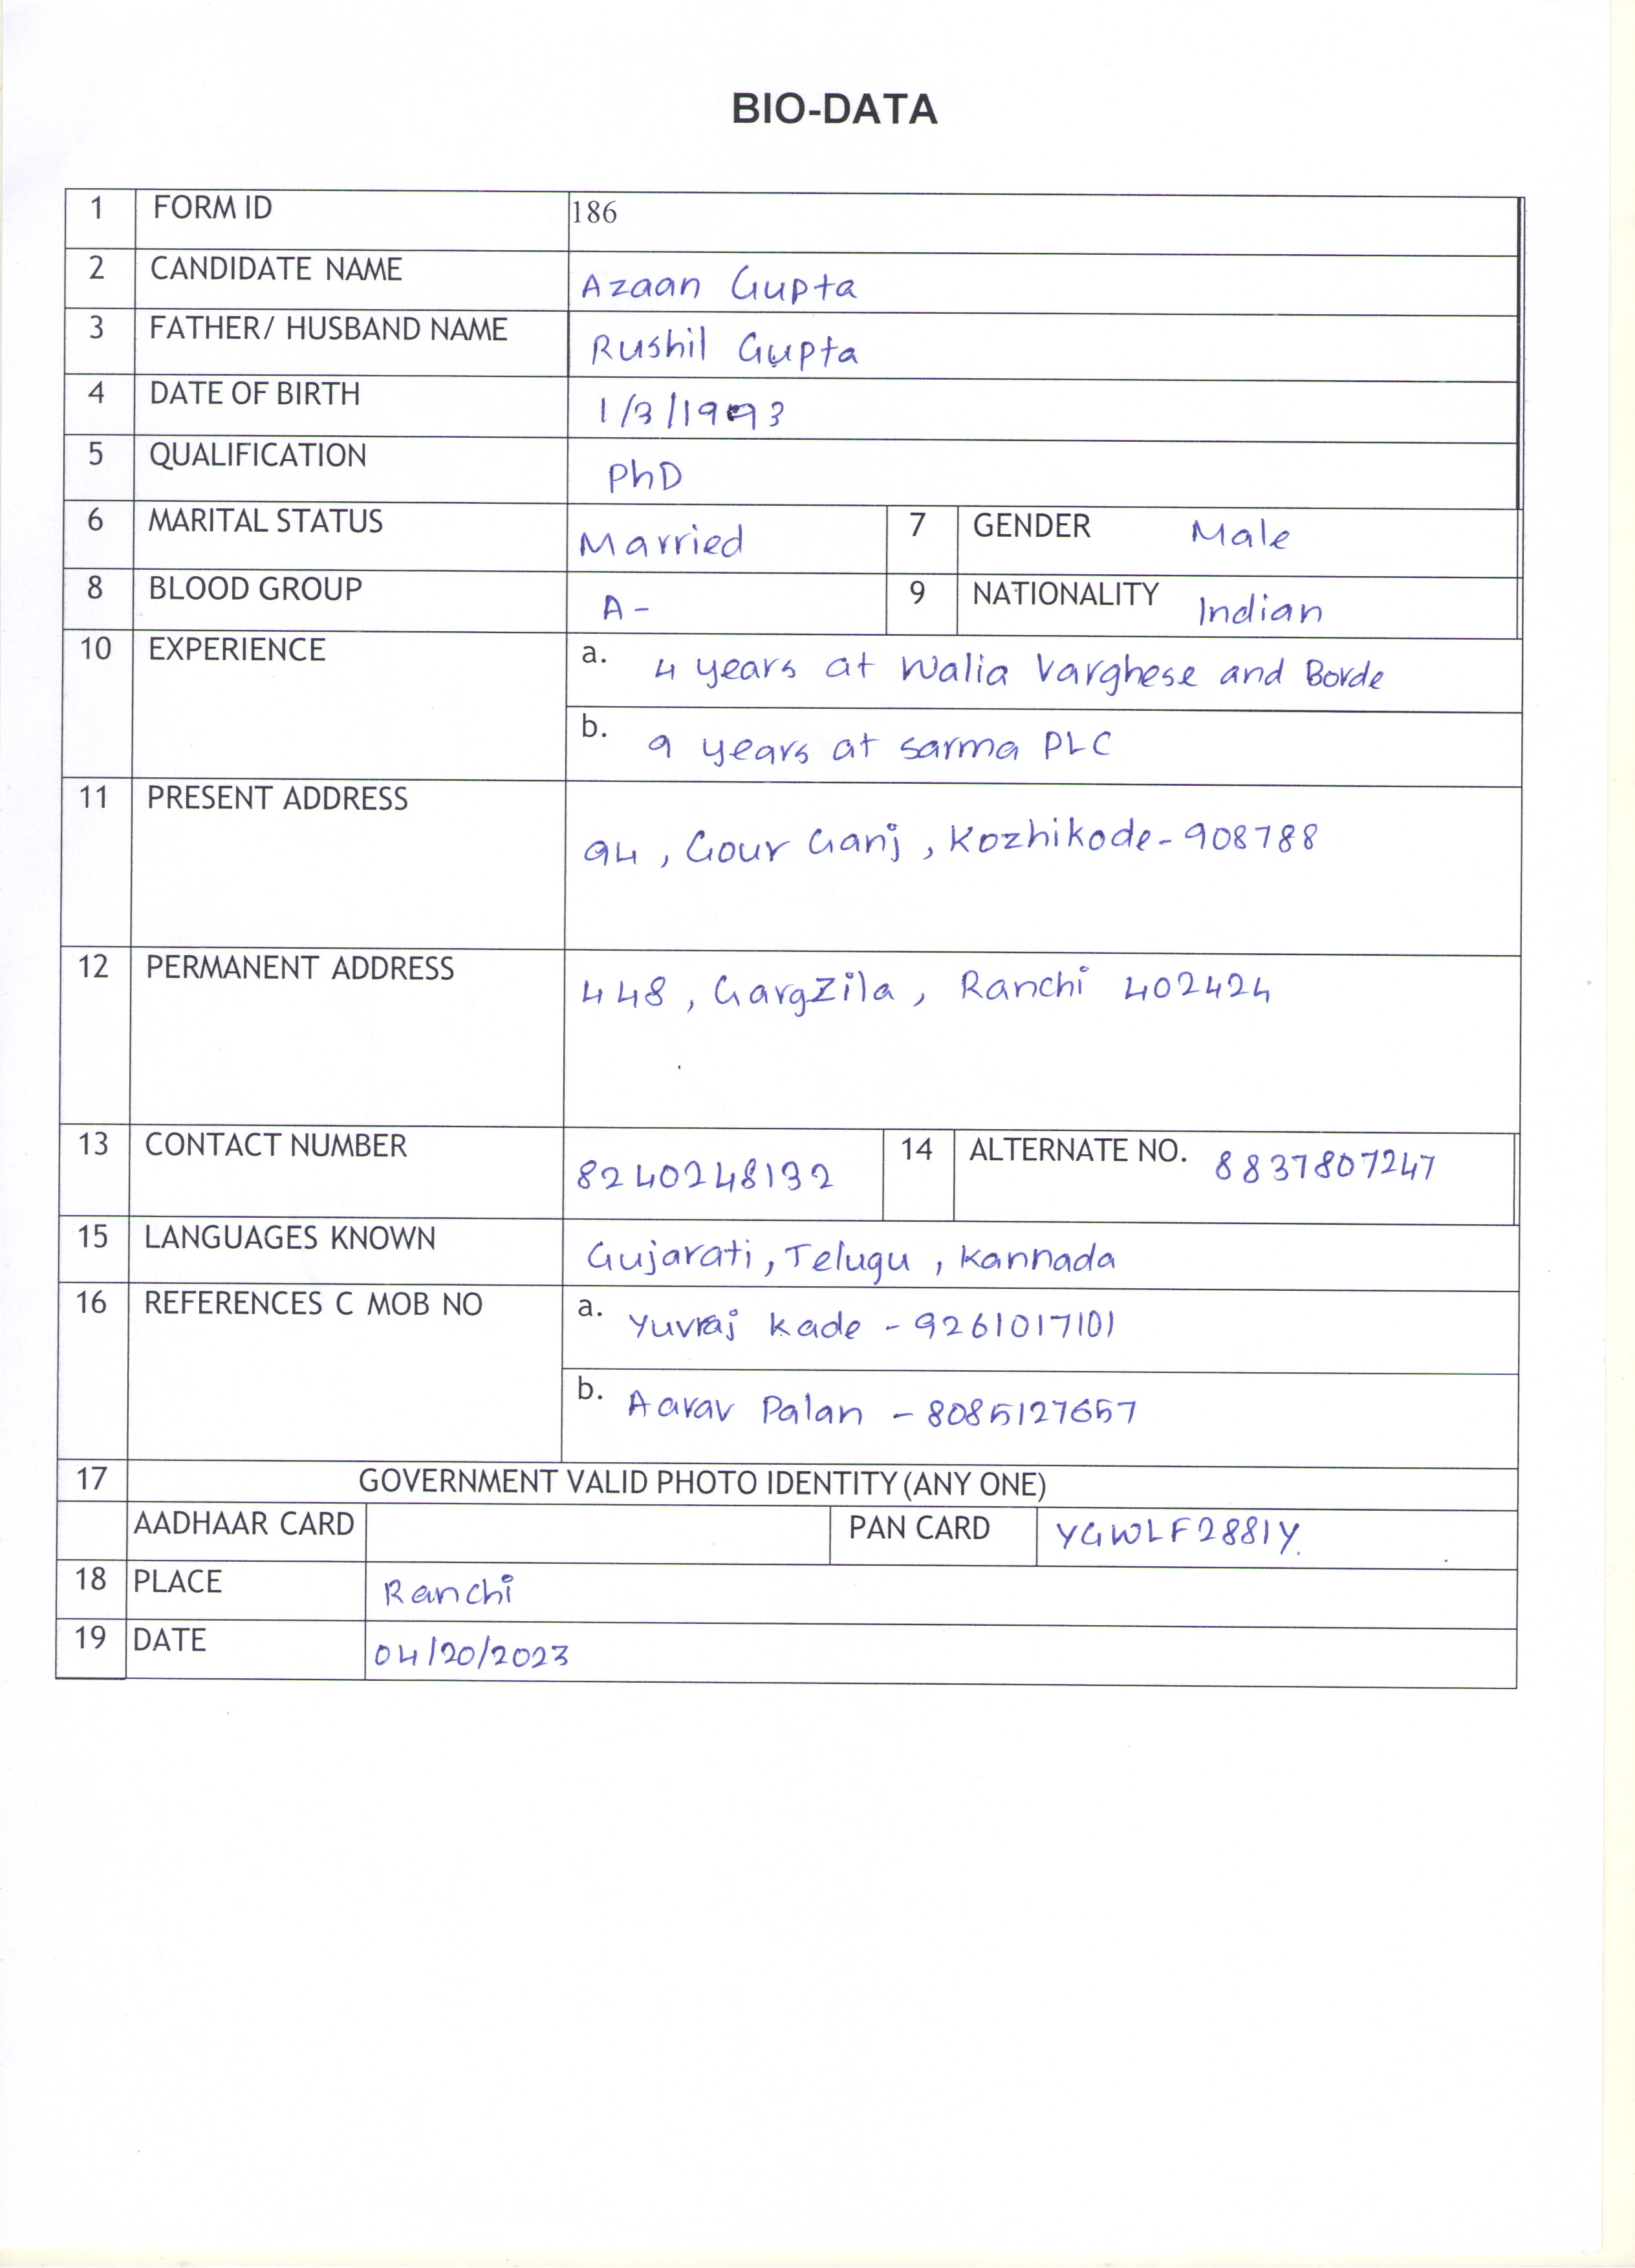 BIO-DATA
1 FORM ID 186
2 CANDIDATE NAME Azaan Gupta
3 FATHER/ HUSBAND NAME Rushil Gupta
4 DATE OF BIRTH 1/3/1993
5 QUALIFICATION PhD
6 MARITAL STATUS Married 7 GENDER Male
8 BLOOD GROUP A- 9 NATIONALITY Indian
10 EXPERIENCE a. 4 years at Walia Varghese and Borde
b. 9 years at Sarma PLC
11 PRESENT ADDRESS 94, Gour Ganj, Kozhikode-908788
12 PERMANENT ADDRESS 448, GargZila, Ranchi 402424
13 CONTACT NUMBER 8240248132 14 ALTERNATE NO. 8837807247
15 LANGUAGES KNOWN Gujarati, Telugu, Kannada
16 REFERENCES C MOB NO a. Yuvraj Kade - 9261017101
b. Aarav Palan - 8085127657
17 GOVERNMENT VALID PHOTO IDENTITY (ANY ONE)
AADHAAR CARD PAN CARD YGWLF2881Y
18 PLACE Ranchi
19 DATE 04/20/2023